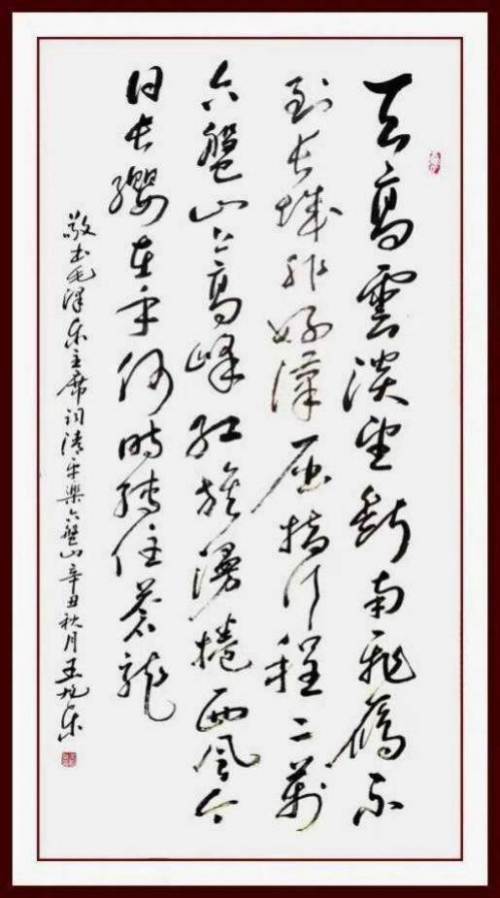 天高雲淡望斷南飛雁不
到長城非好漢屈指行程二萬
六盤山上高峰紅旗漫捲西風今
日長纓在手何時縛住蒼龍
敬书毛泽东主席词清平樂六盤山辛丑秋月王